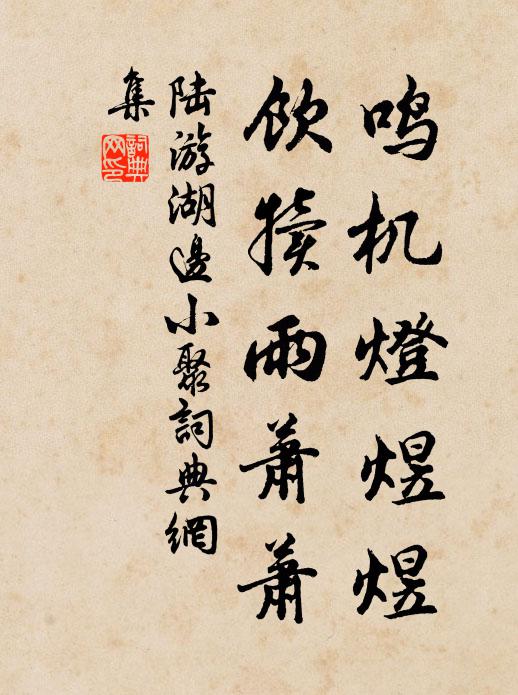 鸣机燈煜煜
饮犊雨蕭蕭
陆游湖邊小聚詞典網
集
詞典网印